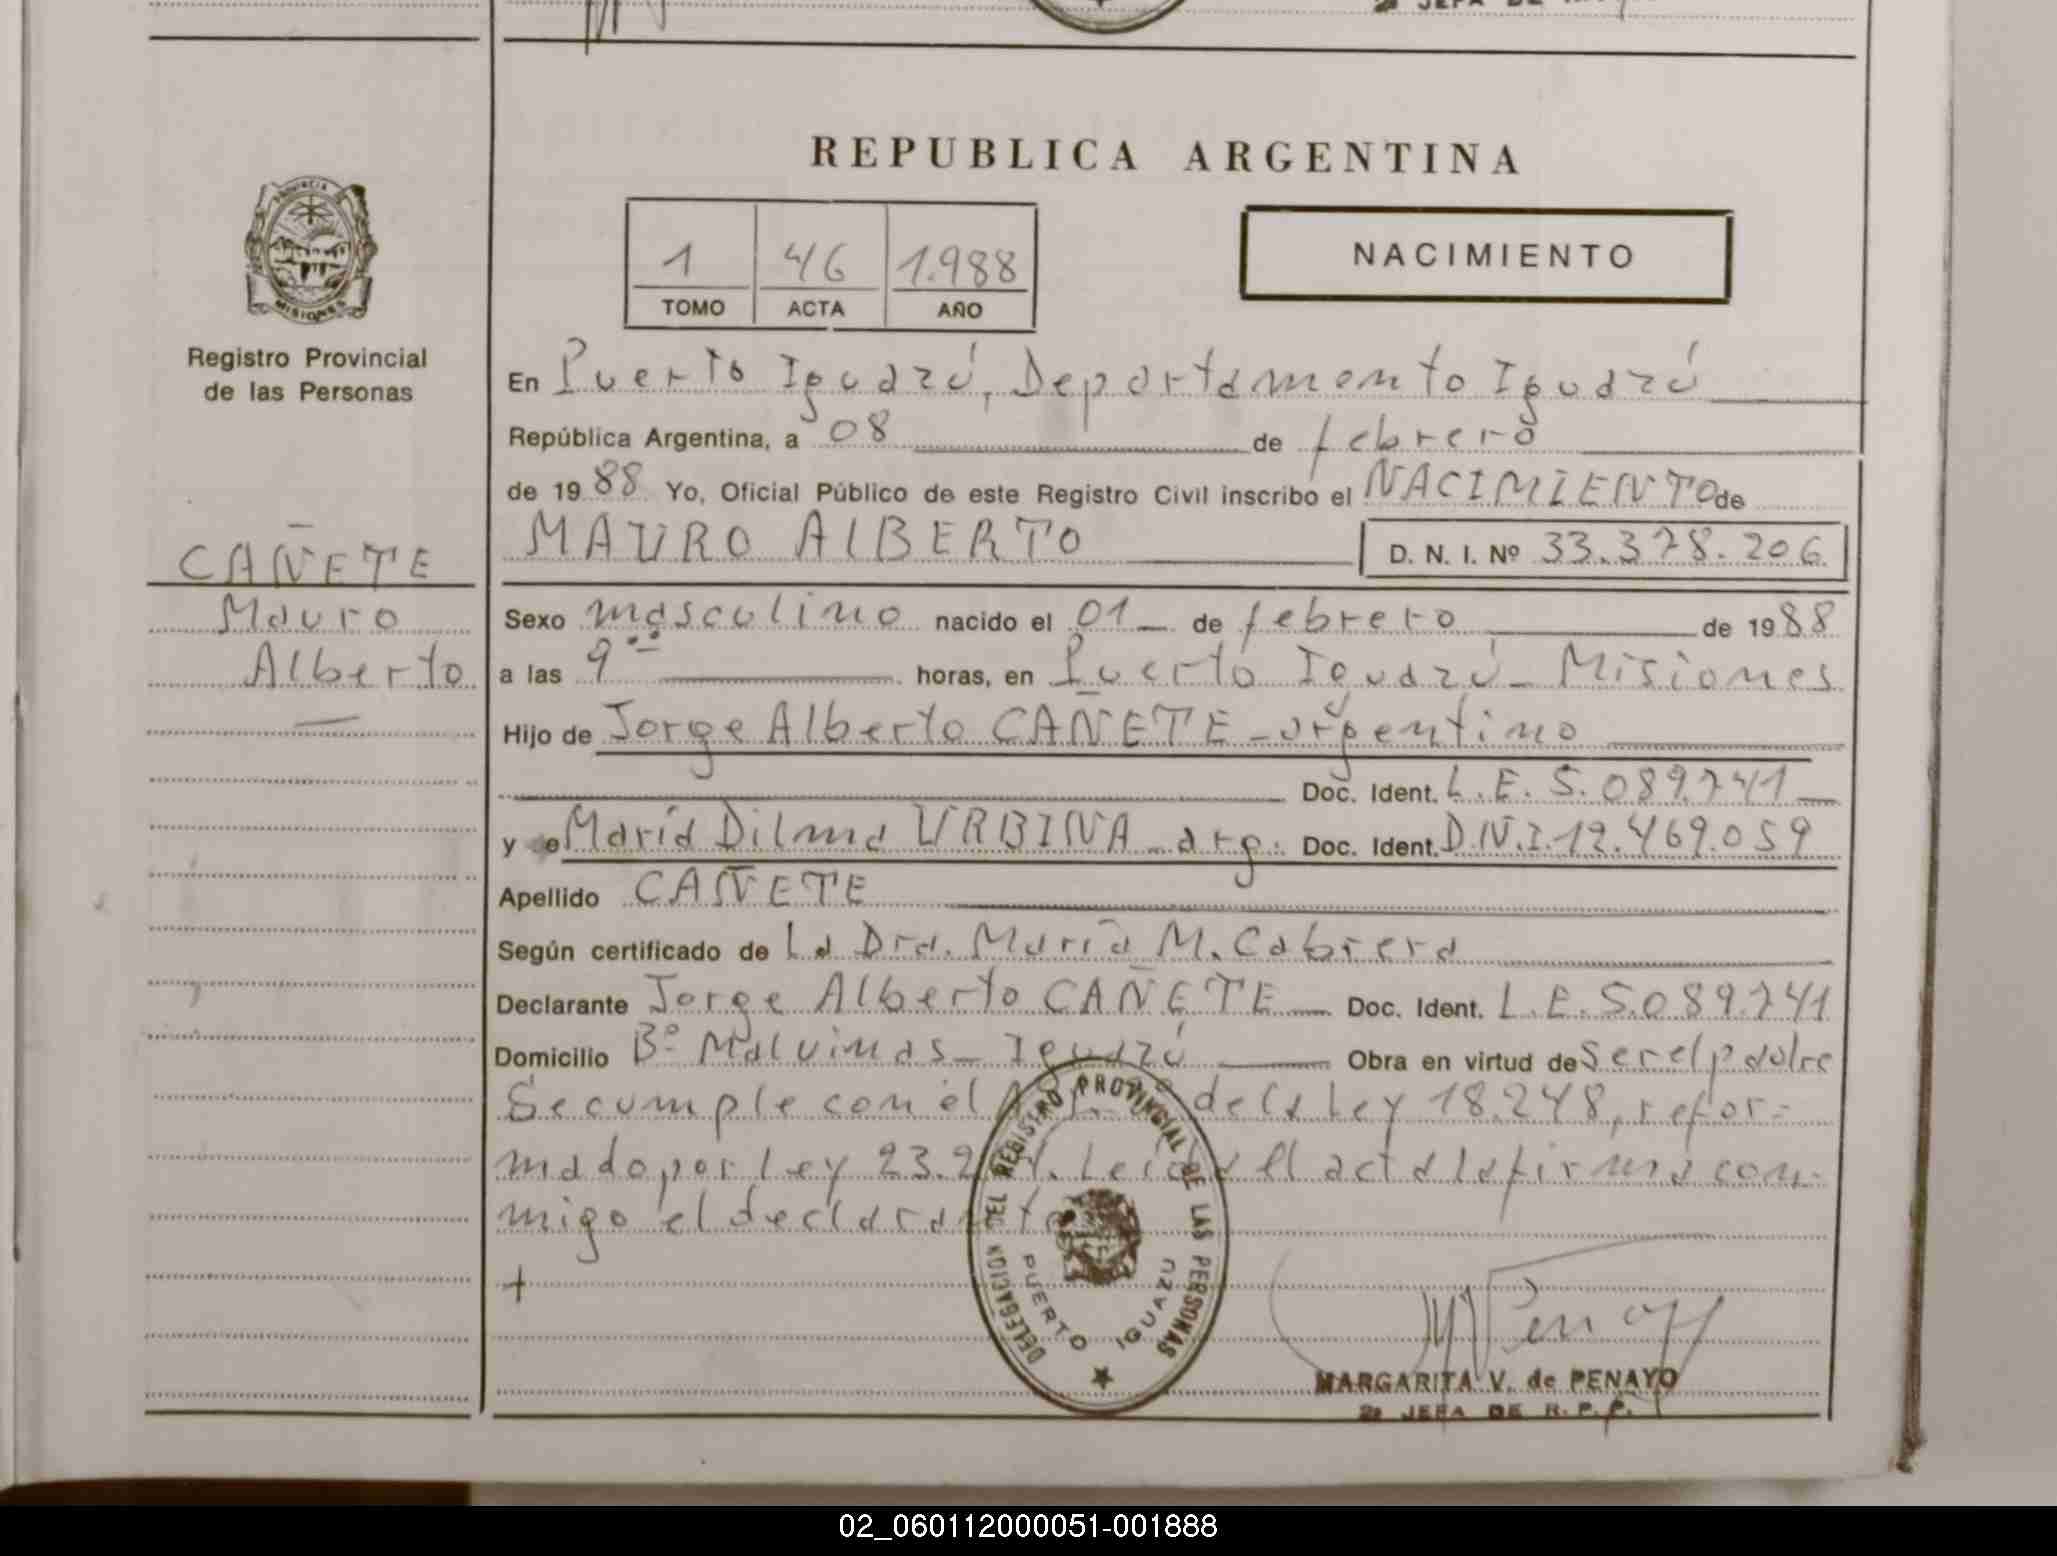 JEFA DE
REPUBLICA ARGENTINA
1 46 1.988
TOMO ACTA AÑO
NACIMIENTO
PROVINCIA
MISIONES
Registro Provincial
de las Personas
CAÑETE
Mauro
Alberto
En Puerto Iguazú, Departamento Iguazú
República Argentina, a 08 de febrero
de 1988 Yo, Oficial Público de este Registro Civil inscribo el NACIMIENTO de
MAURO ALBERTO D. N. I. Nº 33.378.206
Sexo masculino nacido el 01 de febrero de 1988
a las 9 horas, en Puerto Iguazú - Misiones
Hijo de Jorge Alberto CAÑETE - argentino
Doc. Ident. L.E. 5.089.741
y de María Dilma URBINA - arg. Doc. Ident. D.N.I. 12.469.059
Apellido CAÑETE
Según certificado de La Dra. María M. Cabrera
Declarante Jorge Alberto CAÑETE Doc. Ident. L.E. 5.089.741
Domicilio Bº Malvinas - Iguazú Obra en virtud de ser el padre
Se cumple con el de la Ley 18.248, refor-
mado por Ley Leída el acta la firma con-
migo el declarante
DELEGACION DEL REGISTRO PROVINCIAL DE LAS PERSONAS
PUERTO IGUAZU
MPenay
MARGARITA V. de PENAYO
2ª JEFA DE R. P. P.
02_060112000051-001888